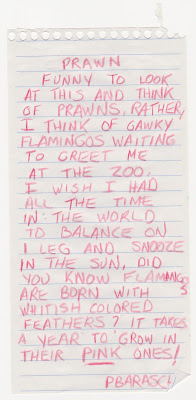 PRAWN
FUNNY TO LOOK
AT THIS AND THINK
OF PRAWNS. RATHER,
I THINK OF GAWKY
FLAMINGOS WAITING
TO GREET ME
AT THE ZOO.
I WISH I HAD
ALL THE TIME
IN THE WORLD
TO BALANCE ON
1 LEG AND SNOOZE
IN THE SUN. DID
YOU KNOW FLAMINGOS
ARE BORN WITH
WHITISH COLORED
FEATHERS? IT TAKES
A YEAR TO GROW IN
THEIR PINK ONES!
PBARASCH